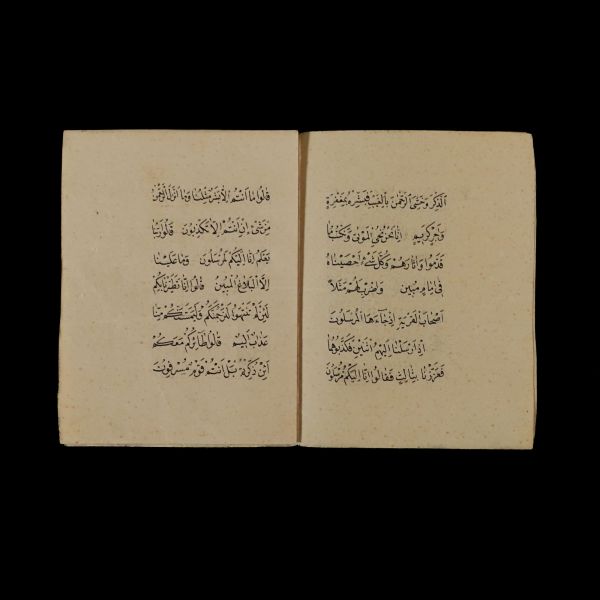 الذكر وخشى الرحمن بالغيب فبشره بمغفرة
واجر كريم انا نحن نحيى الموتى ونكتب ما
قدموا واثارهم وكل شىء احصيناه
فى امام مبين واضرب لهم مثلاً
اصحاب القرية اذ جاءها المرسلون
اذ ارسلنا اليهم اثنين فكذبوهما
فعززنا بثالث فقالوا انا اليكم مرسلون
قالوا ما انتم الا بشر مثلنا وما انزل الرحمن
من شىء ان انتم الا تكذبون قالوا ربنا
يعلم انا اليكم لمرسلون وما علينا
الا البلاغ المبين قالوا انا تطيرنا بكم
لئن لم تنتهوا لنرجمنكم وليمسنكم منا
عذاب اليم قالوا طائركم معكم
ائن ذكرتم بل انتم قوم مسرفون